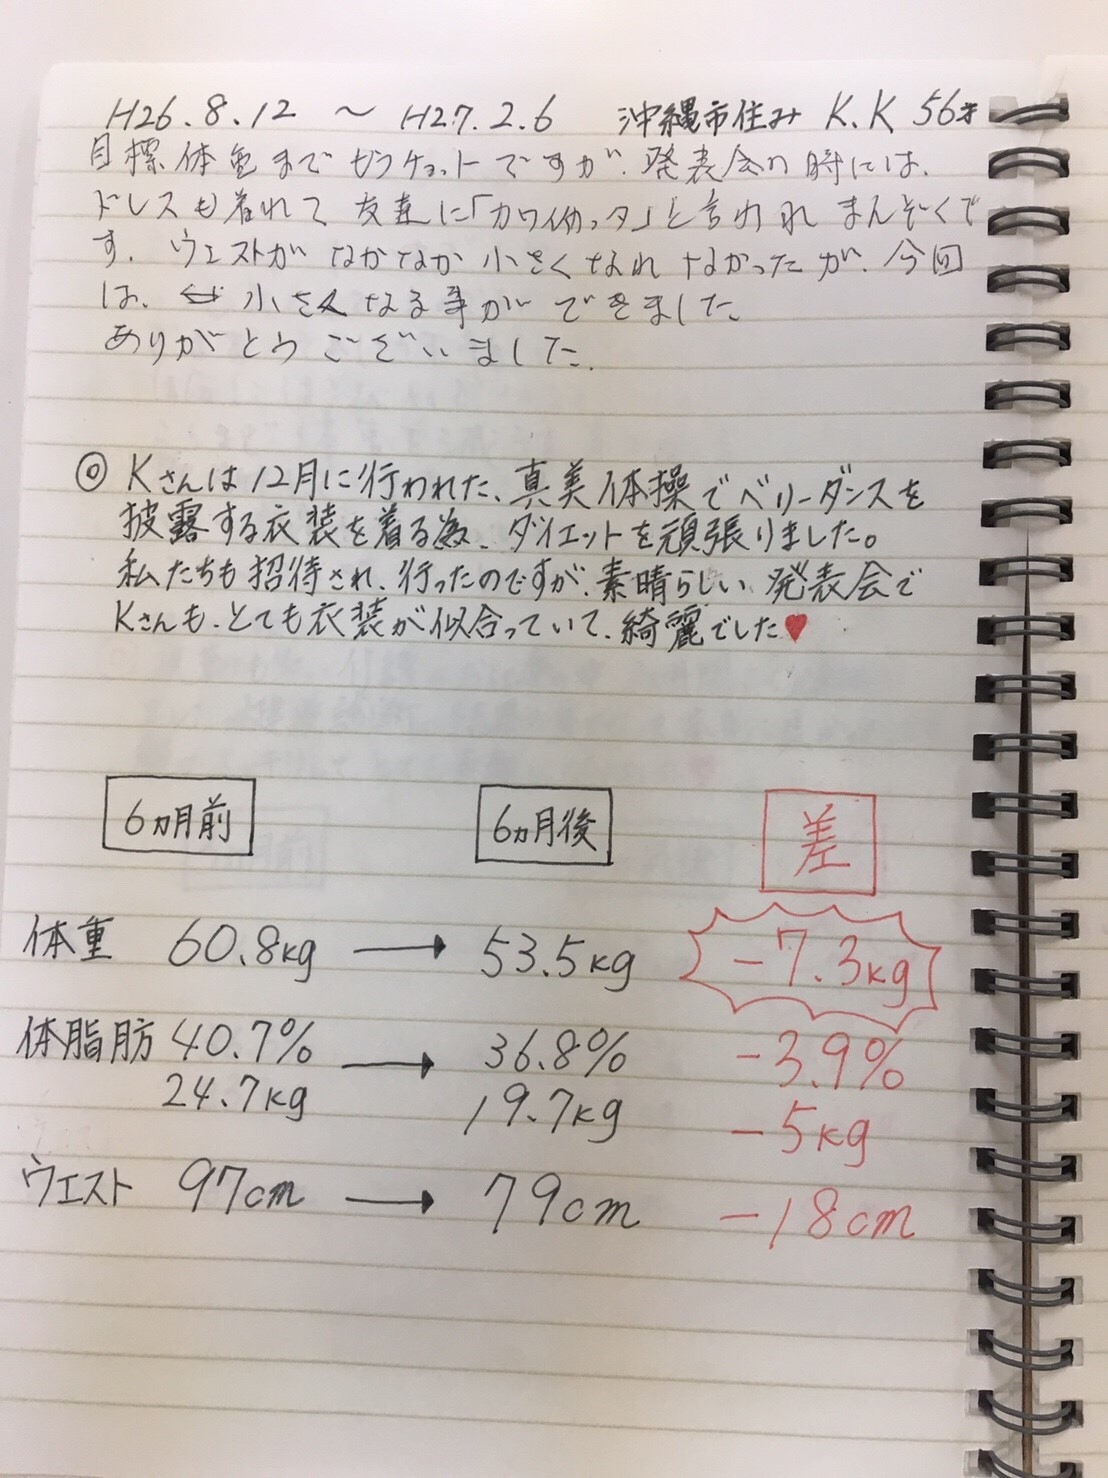 H26.8.12 ～ H27.2.6 沖縄市住み K.K 56才
目標体重まで もうチョットですが、発表会の時には、
ドレスも着れて 友達に「カワイカッタ」と言われ まんぞくで
す。ウエストが なかなか 小さくなれ なかったが、今回
は、小さくなる事ができました。
ありがとうございました。
◎ Kさんは12月に行われた、真美体操でベリーダンスを
披露する衣装を着る為、ダイエットを頑張りました。
私たちも招待され、行ったのですが、素晴らしい発表会で
Kさんも、とても衣装が似合っていて、綺麗でした♥
6ヵ月前 6ヵ月後 差
体重 60.8kg → 53.5kg -7.3kg
体脂肪 40.7% → 36.8% -3.9%
24.7kg 19.7kg -5kg
ウエスト 97cm → 79cm -18cm